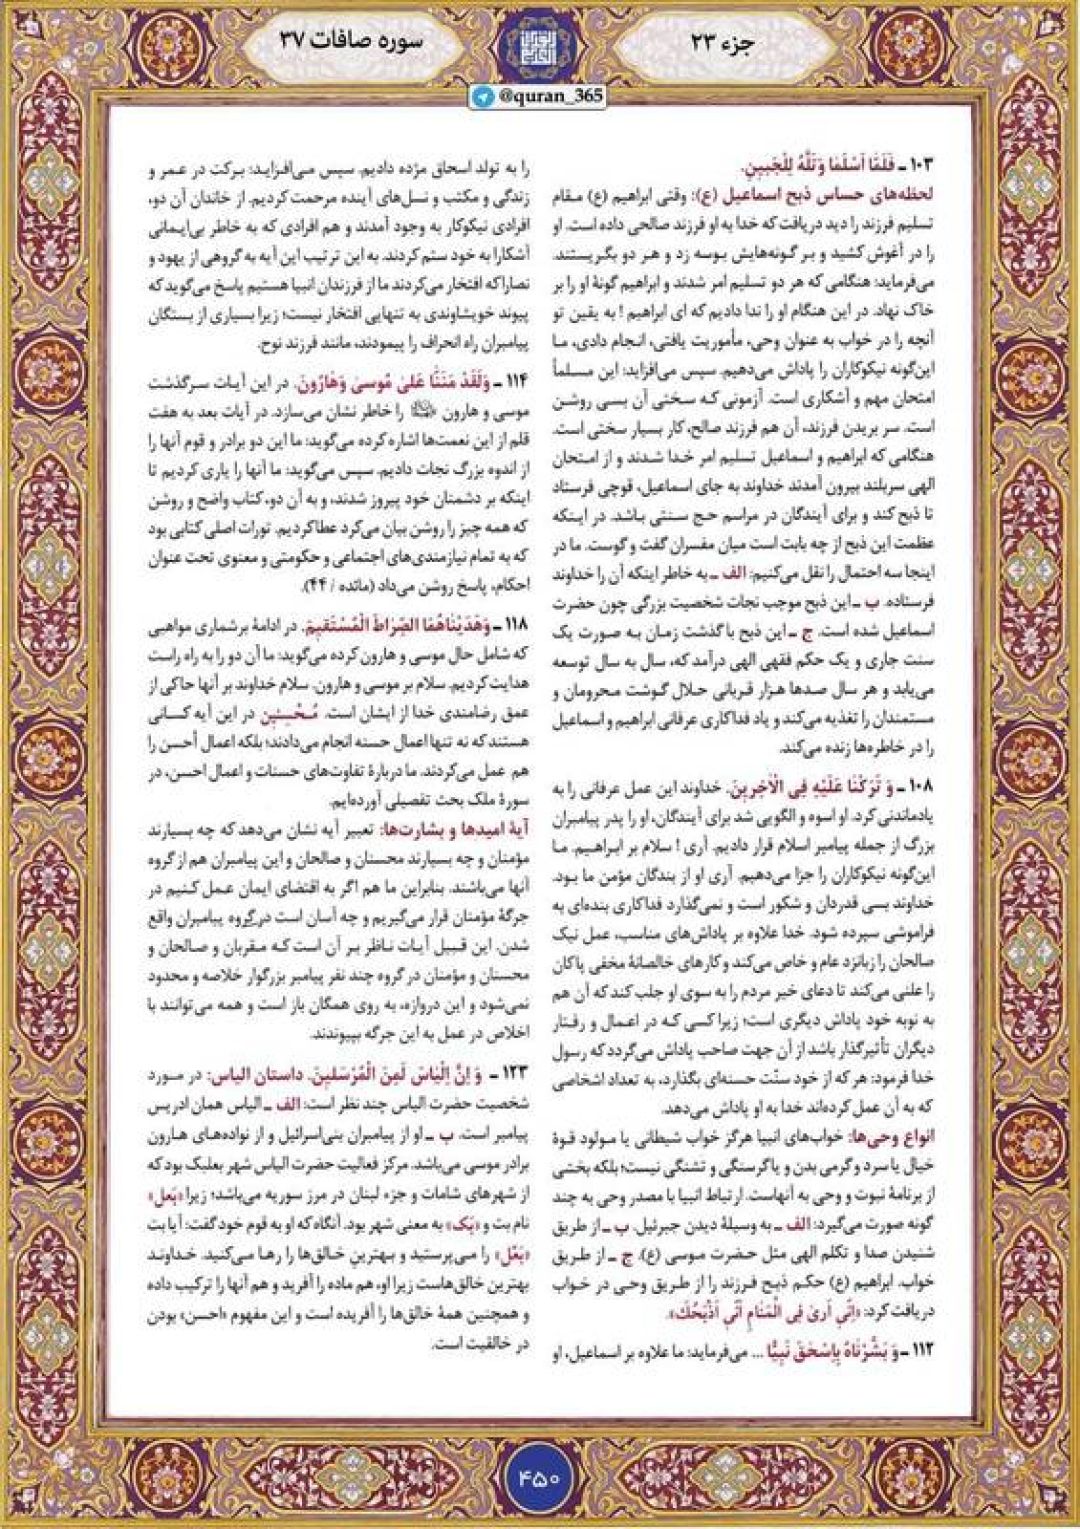 جزء ۲۳
سوره صافات ۳۷
@quran_365
۱۰۳ ـ فَلَمّا اَسْلَما وَتَلَّهُ لِلْجَبينِ.
لحظه‌های حساس ذبح اسماعیل (ع): وقتی ابراهیم (ع) مقام
تسلیم فرزند را دید دریافت که خدا به او فرزند صالحی داده است. او
را در آغوش کشید و بر گونه‌هایش بوسه زد و هر دو بگریستند.
می‌فرماید: هنگامی که هر دو تسلیم امر شدند و ابراهیم گونهٔ او را بر
خاک نهاد. در این هنگام او را ندا دادیم که ای ابراهیم ! به یقین تو
آنچه را در خواب به عنوان وحی، مأموریت یافتی، انجام دادی، ما
این‌گونه نیکوکاران را پاداش می‌دهیم. سپس می‌افزاید: این مسلماً
امتحان مهم و آشکاری است. آزمونی که سختی آن بسی روشن
است. سر بریدن فرزند، آن هم فرزند صالح، کار بسیار سختی است.
هنگامی که ابراهیم و اسماعیل تسلیم امر خدا شدند و از امتحان
الهی سربلند بیرون آمدند خداوند به جای اسماعیل، قوچی فرستاد
تا ذبح کند و برای آیندگان در مراسم حج سنتی باشد. در اینکه
عظمت این ذبح از چه بابت است میان مفسران گفت و گوست. ما در
اینجا سه احتمال را نقل می‌کنیم: الف ـ به خاطر اینکه آن را خداوند
فرستاده. ب ـ این ذبح موجب نجات شخصیت بزرگی چون حضرت
اسماعیل شده است. ج ـ این ذبح با گذشت زمان به صورت یک
سنت جاری و یک حکم فقهی الهی درآمد که، سال به سال توسعه
می‌یابد و هر سال صدها هزار قربانی حلال گوشت محرومان و
مستمندان را تغذیه می‌کند و یاد فداکاری عرفانی ابراهیم و اسماعیل
را در خاطره‌ها زنده می‌کند.
۱۰۸ ـ وَ تَرَكْنا عَلَيْهِ فِى الْاخِرينَ. خداوند این عمل عرفانی را به
یادماندنی کرد. او اسوه و الگویی شد برای آیندگان، او را پدر پیامبران
بزرگ از جمله پیامبر اسلام قرار دادیم. آری ! سلام بر ابراهیم. ما
این‌گونه نیکوکاران را جزا می‌دهیم. آری او از بندگان مؤمن ما بود.
خداوند بسی قدردان و شکور است و نمی‌گذارد فداکاری بنده‌ای به
فراموشی سپرده شود. خدا علاوه بر پاداش‌های مناسب، عمل نیک
صالحان را زبانزد عام و خاص می‌کند و کارهای خالصانهٔ مخفی پاکان
را علنی می‌کند تا دعای خیر مردم را به سوی او جلب کند که آن هم
به نوبه خود پاداش دیگری است؛ زیرا کسی که در اعمال و رفتار
دیگران تأثیرگذار باشد از آن جهت صاحب پاداش می‌گردد که رسول
خدا فرمود: هر که از خود سنّت حسنه‌ای بگذارد، به تعداد اشخاصی
که به آن عمل کرده‌اند خدا به او پاداش می‌دهد.
انواع وحی‌ها: خواب‌های انبیا هرگز خواب شیطانی یا مولود قوهٔ
خیال یا سرد و گرمی بدن و یا گرسنگی و تشنگی نیست؛ بلکه بخشی
از برنامهٔ نبوت و وحی به آنهاست. ارتباط انبیا با مصدر وحی به چند
گونه صورت می‌گیرد: الف ـ به وسیلهٔ دیدن جبرئیل. ب ـ از طریق
شنیدن صدا و تکلم الهی مثل حضرت موسی (ع). ج ـ از طریق
خواب. ابراهیم (ع) حکم ذبح فرزند را از طریق وحی در خواب
دریافت کرد: «اِنّى اَرىٰ فِى الْمَنامِ اَنّى اَذْبَحُكَ».
۱۱۲ ـ وَ بَشَّرْناهُ بِاِسْحٰقَ نَبِيًّا ... می‌فرماید: ما علاوه بر اسماعیل، او
را به تولد اسحاق مژده دادیم. سپس می‌افزاید: برکت در عمر و
زندگی و مکتب و نسل‌های آینده مرحمت کردیم. از خاندان آن دو،
افرادی نیکوکار به وجود آمدند و هم افرادی که به خاطر بی‌ایمانی
آشکارا به خود ستم کردند. به این ترتیب این آیه به گروهی از یهود و
نصارا که افتخار می‌کردند ما از فرزندان انبیا هستیم پاسخ می‌گوید که
پیوند خویشاوندی به تنهایی افتخار نیست؛ زیرا بسیاری از بستگان
پیامبران راه انحراف را پیمودند، مانند فرزند نوح.
۱۱۴ ـ وَلَقَدْ مَنَنّا عَلىٰ مُوسىٰ وَهٰارُونَ. در این آیات سرگذشت
موسی و هارون را خاطر نشان می‌سازد. در آیات بعد به هفت
قلم از این نعمت‌ها اشاره کرده می‌گوید: ما این دو برادر و قوم آنها را
از اندوه بزرگ نجات دادیم. سپس می‌گوید: ما آنها را یاری کردیم تا
اینکه بر دشمنان خود پیروز شدند، و به آن دو، کتاب واضح و روشن
که همه چیز را روشن بیان می‌کرد عطا کردیم. تورات اصلی کتابی بود
که به تمام نیازمندی‌های اجتماعی و حکومتی و معنوی تحت عنوان
احکام، پاسخ روشن می‌داد (مائده / ۴۴).
۱۱۸ ـ وَهَدَيْناهُمَا الصِّراطَ الْمُسْتَقيمَ. در ادامهٔ برشماری مواهبی
که شامل حال موسی و هارون کرده می‌گوید: ما آن دو را به راه راست
هدایت کردیم. سلام بر موسی و هارون. سلام خداوند بر آنها حاکی از
عمق رضامندی خدا از ایشان است. مُحْسِنين در این آیه کسانی
هستند که نه تنها اعمال حسنه انجام می‌دادند؛ بلکه اعمال أحسن را
هم عمل می‌کردند. ما دربارهٔ تفاوت‌های حسنات و اعمال احسن، در
سورهٔ ملک بحث تفصیلی آورده‌ایم.
آیهٔ امیدها و بشارت‌ها: تعبیر آیه نشان می‌دهد که چه بسیارند
مؤمنان و چه بسیارند محسنان و صالحان و این پیامبران هم از گروه
آنها می‌باشند. بنابراین ما هم اگر به اقتضای ایمان عمل کنیم در
جرگهٔ مؤمنان قرار می‌گیریم و چه آسان است در گروه پیامبران واقع
شدن. این قبیل آیات ناظر بر آن است که مقربان و صالحان و
محسنان و مؤمنان در گروه چند نفر پیامبر بزرگوار خلاصه و محدود
نمی‌شود و این دروازه، به روی همگان باز است و همه می‌توانند با
اخلاص در عمل به این جرگه بپیوندند.
۱۲۳ ـ وَ اِنَّ اِلْياسَ لَمِنَ الْمُرْسَلينَ. داستان الیاس: در مورد
شخصیت حضرت الیاس چند نظر است: الف ـ الیاس همان ادریس
پیامبر است. ب ـ او از پیامبران بنی‌اسرائیل و از نواده‌های هارون
برادر موسی می‌باشد. مرکز فعالیت حضرت الیاس شهر بعلبک بود که
از شهرهای شامات و جزء لبنان در مرز سوریه می‌باشد؛ زیرا «بَعل»
نام بت و «بَک» به معنی شهر بود. آنگاه که او به قوم خود گفت: آیا بت
«بَعْل» را می‌پرستید و بهترینِ خالق‌ها را رها می‌کنید. خداوند
بهترین خالق‌هاست زیرا او، هم ماده را آفرید و هم آنها را ترکیب داده
و همچنین همهٔ خالق‌ها را آفریده است و این مفهوم «احسن» بودن
در خالقیت است.
۴۵۰